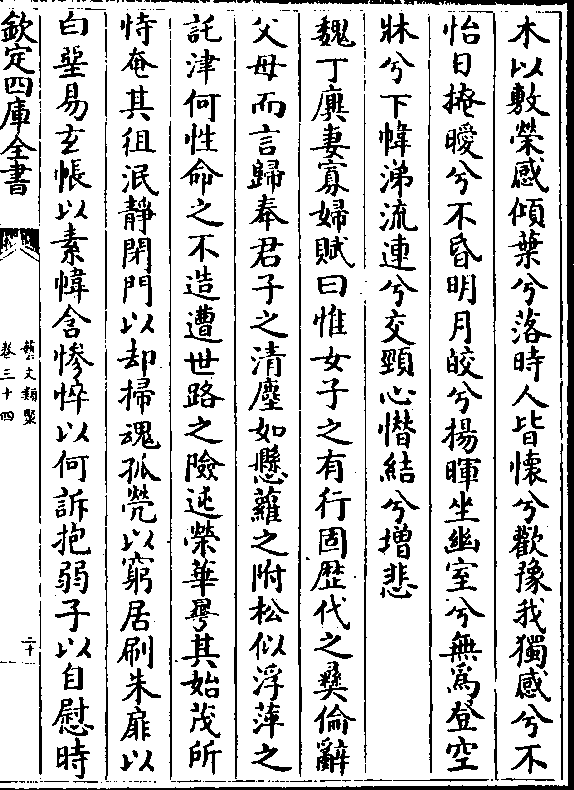 木以敷榮感傾葉兮落時人皆懷兮歡豫我獨感兮不
怡日掩曖兮不昏明月皎兮揚暉坐幽室兮無為登空
牀兮下幃涕流連兮交頸心憯結兮增悲
魏丁廙妻寡婦賦曰惟女子之有行固歴代之彛倫辭
父母而言歸奉君子之清塵如懸蘿之附松似浮萍之
託津何性命之不造遭世路之險迍榮華曄其始茂所
恃奄其徂泯靜閉門以却掃魂孤煢以窮居刷朱扉以
白堊易玄帳以素幃含慘悴以何訴抱弱子以自慰時
欽定四庫全書
藝文類聚
卷三十四
二十